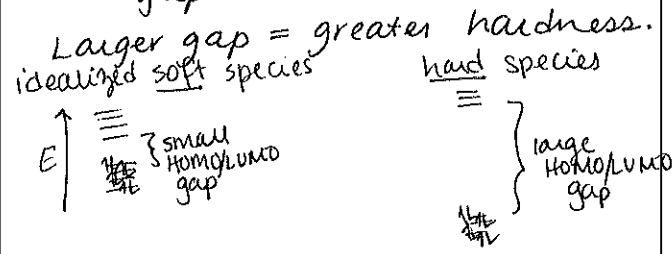 Larger gap = greater hardness.
idealized soft species
hard species
E
small
HOMO/LUMO
gap
large
HOMO/LUMO
gap